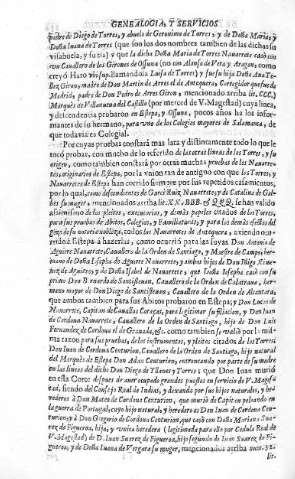 GENEALOGIA, Y SERVICIOS
padre de Diego de Torres, y abuelo de Geronimo de Torres: y de Doña Maria, y
Doña Juana de Torres (que son los dos nombres tambien de las dichas su
visabuela, y su tia) y que la dicha Doña Maria de Torres Navarrete casò con
von Cavallero de los Girones de Ossuna (no con Alonso de Vera y Aragon, como
creyò Haro vbi sup. llamandola Luisa de Torres) y fue su hija Doña Ana Te-
llez Giron, madre de Don Martin de Arrese de Antequera, Corregidor que fue de
Madrid, padre de Don Pedro de Arrese Giron, mencionado arriba lit. CCC.
Marquès de Villanueva del Castillo (por merced de V. Magestad) cuya linea,
y descendencia probaron en Estepa, y Ossuna, pocos años ha los infor-
mantes de su hermano, para vno de los Colegios mayores de Salamanca, de
que todavia es Colegial.
Por cuyas pruebas constarà mas lata y distintamente todo lo que le
tocò probar, con mucho de lo referido de las otras lineas de los Torres, y su
origen, como tambien constarà por otras muchas pruebas de los Navarre-
tes, originarios de Estepa, por la vnion tan de antiguo con que los Torres, y
Navarretes de Estepa han corrido siempre por sus repetidos casamientos,
por lo qual, como descendientes de Garci Ruiz Navarrete, y de Catalina de Gal-
su muger, mencionados arriba lit. XX, BBB.
assimismo de los pleitos, executorias, y demàs papeles citados de los Torres,
para sus pruebas de Abitos, Colegios, y Familiaturas, y para los demàs efectos del
goze de su notoria nobleza, todos los Navarretes de Antequera, aviendo ocur-
rido à Estepa à hazerlas, como ocurriò para las suyas Don Antonio de
Aguirre Navarrete, Cavallero de la Orden de Santiago, y Maestre de Campo, her-
mano de Doña Iosepha de Aguirre Navarrete, y ambos hijos de Don Diego Xime-
nez de Aguirre, y de Doña Isabel de Navarrete, que Doña Iosepha casò con su
primo Don Bernardo de Santistevan, Cavallero de la Orden de Calatrava, her-
mano mayor de Don Diego de Santistevan, Cavallero de la Orden de Alcantara,
que ambos tambien para sus Abitos probaron en Estepa; y Don Lucas de
Navarrete, Capitan de Cavallos Corazas, para legitimar su filiacion, y Don Juan
de Cordova Navarrete, Cavallero de la Orden de Santiago, hijo de Don Luis
Fernandez de Cordova el de Granada, &c. como tambien se valiò por la mis-
ma razon para sus pruebas, de los instrumentos, y pleitos citados de los Torres
Don Iuan de Cordova Centurion, Cavallero de la Orden de Santiago, hijo natural
del Marquès de Estepa Don Adan Centurion, entrocando por parte de su madre
en las lineas del dicho Don Diego de Tovar y Torres: que Don Iuan muriò
en esta Corte despues de aver ocupado grandes puestos en servicio de V. Mages-
tad, siendo del Consejo Real de Indias, y dexando por sus hijos naturales, y here-
deros à Don Mateo de Cordova Centurion, que muriò de Capitan peleando en
la guerra de Portugal, cuyo hijo natural, y heredero es Don Iuan de Cordova Cen-
turion; y à Don Gregorio de Cordova Centurion, que casò con Doña Mariana Sua-
rez de Figueroa, hija, y vnica heredera (legitimada para ello por Cedula Real de
V. Magestad) de D. Iuan Suarez de Figueroa, hijo segundo de Iuan Suarez de Fi-
gueroa, y de Doña Iuana de Vergara su muger, mencionados arriba